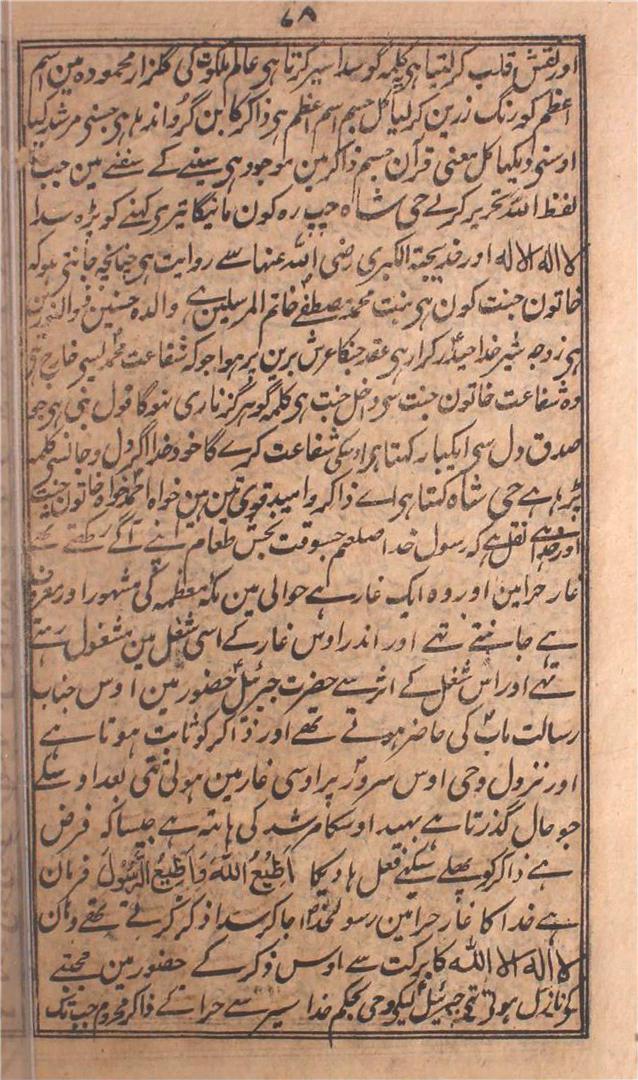 ٦٨
اور نقش قلب کر لیتا ہی کلمہ گو سدا سیر کرتا ہی عالم ملکوت کی گلزار محمودہ مین اسم
اعظم کو رنگ زرین کر لیا کل جسم اسم اعظم ہی ذاکر کا بن گر و اندہلہی جسنی مرشد کیا
اوسنی دیکہا کل معنی قرآن جسم ذاکر مین موجود ہی سینے کے سفنے مین جب
لفظ اللہ تحریر کرلے حی شاہ چپ رہ کون مانیگا تیری کہنے کو پڑہ سدا
لا الہ الا لہ اور خدیجۃ الکبری رضی اللہ عنہا سے روایت ہی چنانچہ جانتی ہو کہ
خاتون جنت کون ہی بنت محمد مصطفے خاتم المرسلین ہے والدہ حسنین
ہی زوجہ شیر خدا حیدر کرار ہی عقد جنکا عرش برین پر ہوا جو کہ شفاعت محمد لیسی خارج ہی
وہ شفاعت خاتون جنت سی داخل جنت ہی کلمہ گو ہرگز ناری نہوگا قول نبی ہی جو
صدق دل سی ایکبار کہتا ہی اوسکی شفاعت کرے گا خود خدا اگر دل و جانسی کلمہ
پڑہا ہے حی شاہ کہتا ہی اے ذاکر و امید قوی تین ہین خواہ محمد خواہ خاتون جنت
اور خدا ہے نقل ہے کہ رسول خدا صلعم جسوقت بخش طعام اپنے آگے رکھتے تھے
غار حرا مین اور وہ ایک غار ہے حوالی مین مکہ معظمہ کی مشہور اور معروف
ہے جانتے تہے اور اندر اوس غار کے اسی شغل مین مشغول رہتے
تہے اور اس شغل کے اثر سے حضرت جبرئیل حضور مین اوس جناب
رسالت ماب کی حاضر ہوتے تھے اور ذاکر کو ثابت ہوتا ہے
اور نزول وحی اوس سرور پر اوسی غار مین ہوئی تہی بعد اوسکے
جو حال گذرتا ہے بہید اوسکا مرشد کی ہاتہ ہے جیسا کہ فرض
ہے ذاکر کو پہلے سیکہے فعل ہادیکا اَطِیْعُ اللہَ وَاَطِیْعُ الرَّسُوْلَ فرمان
ہے خدا کا غار حرا مین رسولخدا جا کر سدا ذکر کرتے تھے وہان
لا الہ الا اللہ کا برکت سے اوس ذکر کے حضور مین مجتبے
کو نازل ہوتی تہی جبرئیل لیکے وحی بحکم خدا سیر سے حرا کے ذاکر محروم جب تک